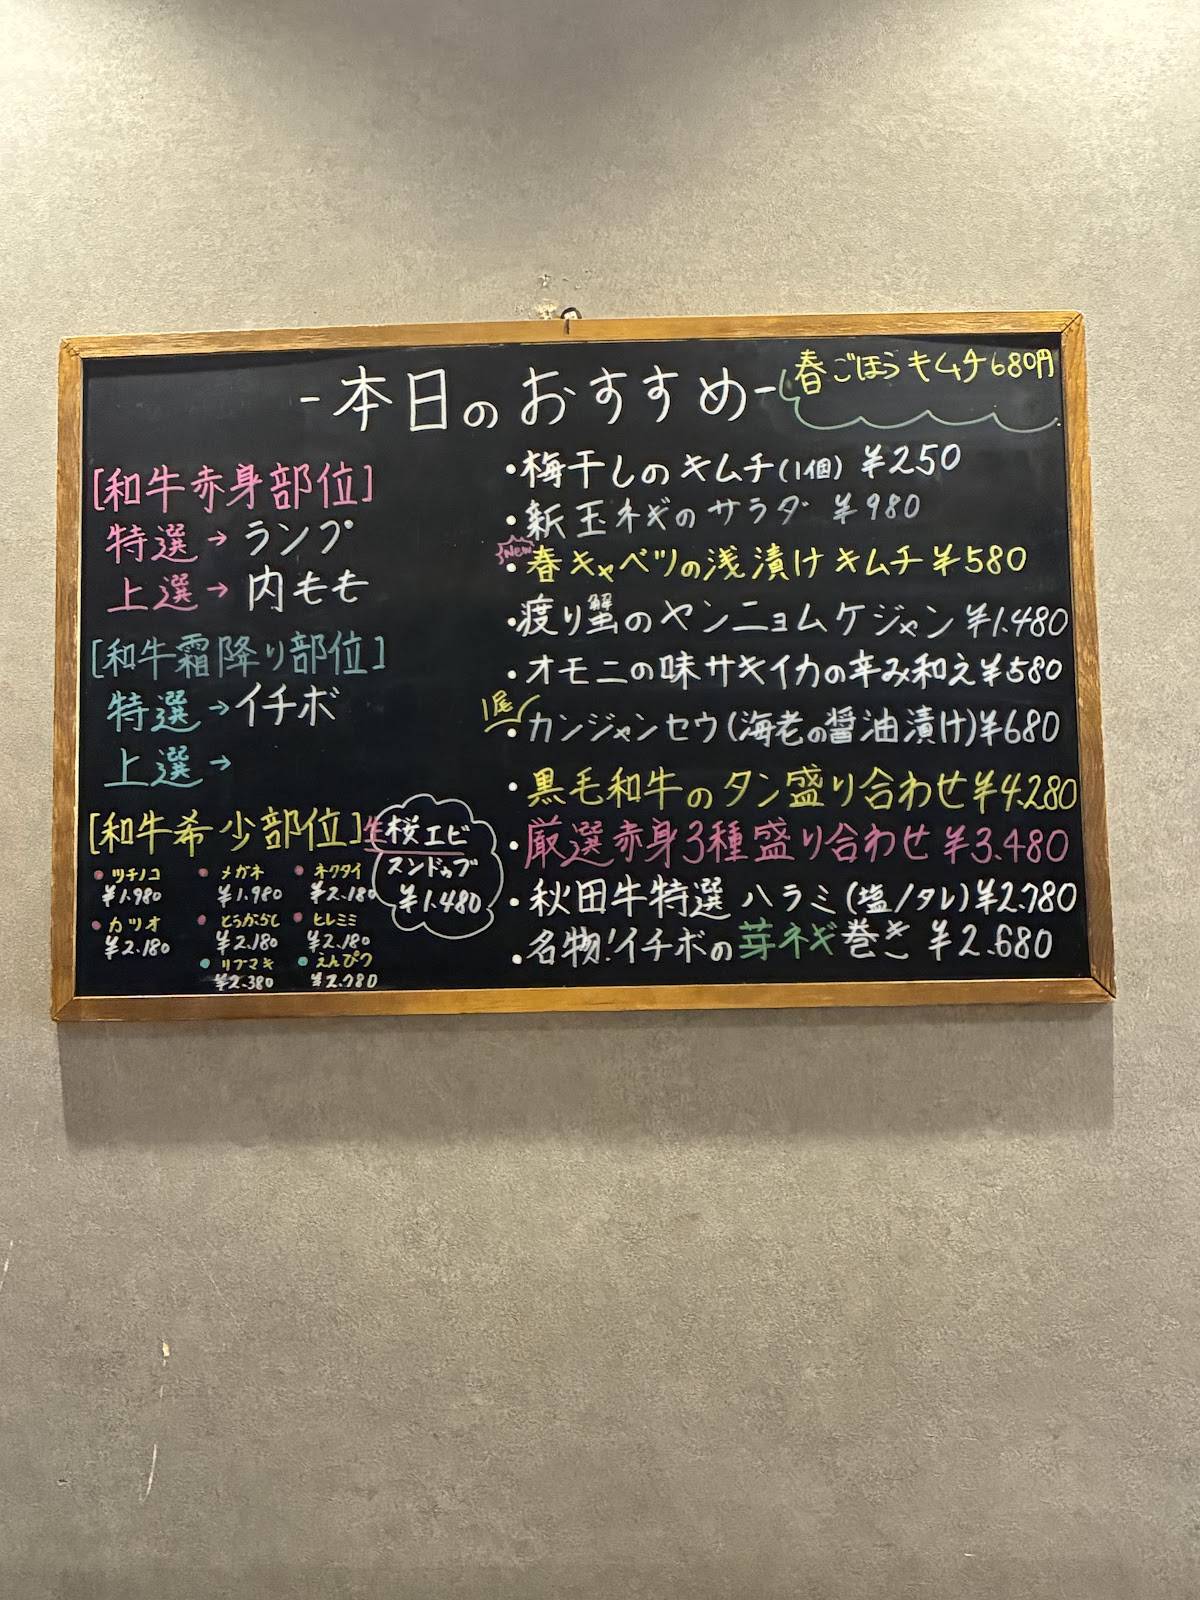 -本日のおすすめ-
春ごぼうキムチ680円
[和牛赤身部位]
特選→ランプ
上選→内もも
[和牛霜降り部位]
特選→イチボ
上選→
[和牛希少部位]
・ツチノコ
¥1.980
・メガネ
¥1.980
・ネクタイ
¥2.180
・カツオ
¥2.180
・とうがらし
¥2.180
・ヒレミミ
¥2.180
・リブマキ
¥2.380
・えんぴつ
¥2.780
生桜エビ
スンドゥブ
¥1.480
・梅干しのキムチ(1個) ¥250
・新玉ネギのサラダ ¥980
New
・春キャベツの浅漬けキムチ ¥580
・渡り蟹のヤンニョムケジャン ¥1.480
・オモニの味サキイカの辛み和え ¥580
1尾
・カンジャンセウ(海老の醤油漬け) ¥680
・黒毛和牛のタン盛り合わせ ¥4.280
・厳選赤身3種盛り合わせ ¥3.480
・秋田牛特選ハラミ(塩/タレ) ¥2.780
・名物!イチボの芽ネギ巻き ¥2.680